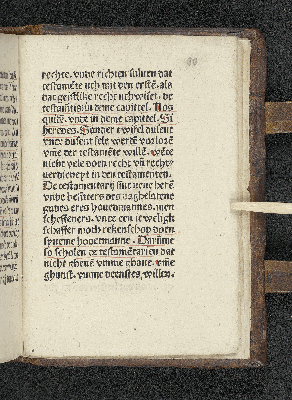 rechte. vnde richten schllen dat
testamēte vth mit den erstē. als
dat geistlike recht vthwiset. de
testaītis in deme capittel. Nos
quidē. vnde in deme capittel. Si
heredes. Sunder twisel dusent
vnde dusent sele werdē vorlorē
vme der testamēte willē. wēte
nicht vele doen recht vn̄ rechtv
erdicheyt in den testamenten.
De testamentarij sint jene herē
vnde besitters des naghelatene
gudes eres houetmannes. men
scheffeners. vnde een iewelick
schaffer moth rekenschop doen
syneme houetmanne. Darūme
so scholen de testamētarien dat
nicht ...
ghunst. vnnme deenstes willen.